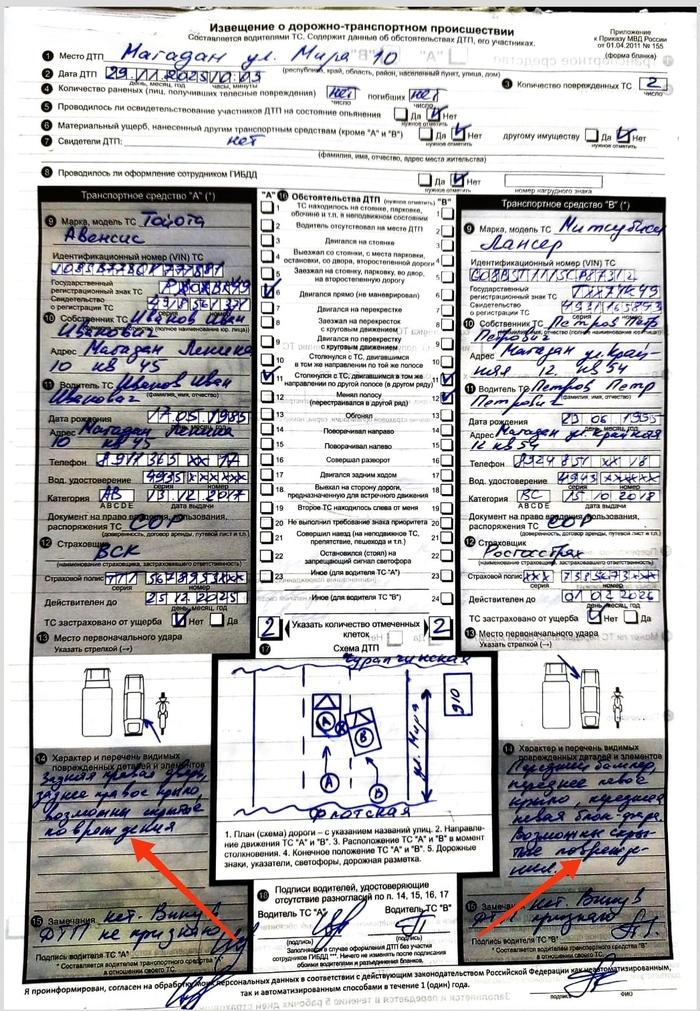 Извещение о дорожно-транспортном происшествии
Составляется водителями ТС. Содержит данные об обстоятельствах ДТП, его участниках.
Приложение
к Приказу МВД России
от 01.04.2011 № 155
(форма бланка)
1 Место ДТП Магадан ул. Мира 10
(республика, край, область, район, населенный пункт, улица, дом)
2 Дата ДТП 29.11.2025 10:03
день, месяц, год часы, минуты
3 Количество поврежденных ТС 2
число
4 Количество раненых (лиц, получивших телесные повреждения) нет погибших нет
число число
5 Проводилось ли освидетельствование участников ДТП на состояние опьянения Да Нет
нужное отметить
6 Материальный ущерб, нанесенный другим транспортным средствам (кроме "А" и "В") Да Нет другому имуществу Да Нет
нужное отметить нужное отметить
7 Свидетели ДТП: нет
(фамилия, имя, отчество, адрес места жительства)
8 Проводилось ли оформление сотрудником ГИБДД Да Нет
нужное отметить номер нагрудного знака
Транспортное средство "А" (*)
9 Марка, модель ТС Тойота
Авенсис
Идентификационный номер (VIN) ТС
Государственный
регистрационный знак ТС
Свидетельство
о регистрации ТС
серия номер
10 Собственник ТС Иванов Иван
Иванович
Адрес Магадан Ленина
10 кв 45
11 Водитель ТС Иванов Иван
Иванович
(фамилия, имя, отчество)
Дата рождения 17.05.1985
день, месяц, год
Адрес Магадан Ленина
10 кв 45
Телефон 8911 363 хх 17
Вод. удостоверение 4935 хххххх
серия номер
Категория АВ 13.12.2017
ABCDE дата выдачи
Документ на право владения, пользования,
распоряжения ТС СОР
(доверенность, договор аренды, путевой лист и т.п.)
12 Страховщик
ВСК
(наименование страховщика, застраховавшего ответственность)
Страховой полис
серия номер
Действителен до 25.12.2025
день, месяц, год
ТС застраховано от ущерба Нет Да
13 Место первоначального удара
Указать стрелкой (→)
14 Характер и перечень видимых
поврежденных деталей и элементов
Задняя правая дверь,
заднее правое крыло,
возможны скрытые
повреждения
15 Замечания Нет. Вину в
ДТП не признаю
Подпись водителя ТС "А"
* Составляется водителем транспортного средства "А"
в отношении своего ТС.
"А" 16 Обстоятельства ДТП (нужное отметить) "В"
1 ТС находилось на стоянке, парковке, обочине и т.п. в неподвижном состоянии 1
2 Водитель отсутствовал на месте ДТП 2
3 Двигался на стоянке 3
4 Выезжал со стоянки, с места парковки, остановки, со двора, второстепенной дороги 4
5 Заезжал на стоянку, парковку, во двор, на второстепенную дорогу 5
6 Двигался прямо (не маневрировал) 6
7 Двигался на перекрестке 7
8 Заезжал на перекресток с круговым движением 8
9 Двигался по перекрестку с круговым движением 9
10 Столкнулся с ТС, двигавшимся в том же направлении по той же полосе 10
11 Столкнулся с ТС, двигавшимся в том же направлении по другой полосе (в другом ряду) 11
12 Менял полосу (перестраивался в другой ряд) 12
13 Обгонял 13
14 Поворачивал направо 14
15 Поворачивал налево 15
16 Совершал разворот 16
17 Двигался задним ходом 17
18 Выехал на сторону дороги, предназначенную для встречного движения 18
19 Второе ТС находилось слева от меня 19
20 Не выполнил требование знака приоритета 20
21 Совершил наезд (на неподвижное ТС, препятствие, пешехода и т.п.) 21
22 Остановился (стоял) на запрещающий сигнал светофора 22
23 Иное (для водителя ТС "А") 23
Иное (для водителя ТС "В") 24
2 Указать количество отмеченных клеток 2
17 Схема ДТП
А В
А В
ул. Мира
д10
Флотская
1. План (схема) дороги – с указанием названий улиц. 2. Направле-
ние движения ТС "А" и "В". 3. Расположение ТС "А" и "В" в момент
столкновения. 4. Конечное положение ТС "А" и "В". 5. Дорожные
знаки, указатели, светофоры, дорожная разметка.
18 Подписи водителей, удостоверяющие
отсутствие разногласий по п. 14, 15, 16, 17
Водитель ТС "А" Водитель ТС "В"
(подпись) (подпись)
Заполняется в случае оформления ДТП без участия
сотрудников ГИБДД ***. Ничего не изменять после подписания
обоими водителями и разъединения бланков.
Транспортное средство "В" (*)
9 Марка, модель ТС Митсубиси
Лансер
Идентификационный номер (VIN) ТС
Государственный
регистрационный знак ТС
Свидетельство
о регистрации ТС
серия номер
10 Собственник ТС Петров Петр
Петрович
Адрес Магадан ул. Край-
няя 12 кв 54
11 Водитель ТС Петров Петр
Петрович
(фамилия, имя, отчество)
Дата рождения 23 06 1955
день, месяц, год
Адрес Магадан ул. Крайняя
12 кв 54
Телефон 8924 851 хх 18
Вод. удостоверение 4943 хххххх
серия номер
Категория ВС 15 10 2018
ABCDE дата выдачи
Документ на право владения, пользования,
распоряжения ТС СОР
(доверенность, договор аренды, путевой лист и т.п.)
12 Страховщик
Росгосстрах
(наименование страховщика, застраховавшего ответственность)
Страховой полис
серия номер
Действителен до 01 02 2026
день, месяц, год
ТС застраховано от ущерба Нет Да
13 Место первоначального удара
Указать стрелкой (→)
14 Характер и перечень видимых
поврежденных деталей и элементов
Передний бампер,
переднее левое
крыло, передняя
левая блок-фара.
Возможны скры-
тые поврежде-
ния.
15 Замечания Нет. Вину в
ДТП признаю
Подпись водителя ТС "В"
* Составляется водителем транспортного средства "В"
в отношении своего ТС.
Я проинформирован, согласен на обработку моих персональных данных в соответствии с действующим законодательством Российской Федерации как неавтоматизированным,
так и автоматизированным способами в течение 1 (один) года.
подпись ФИО